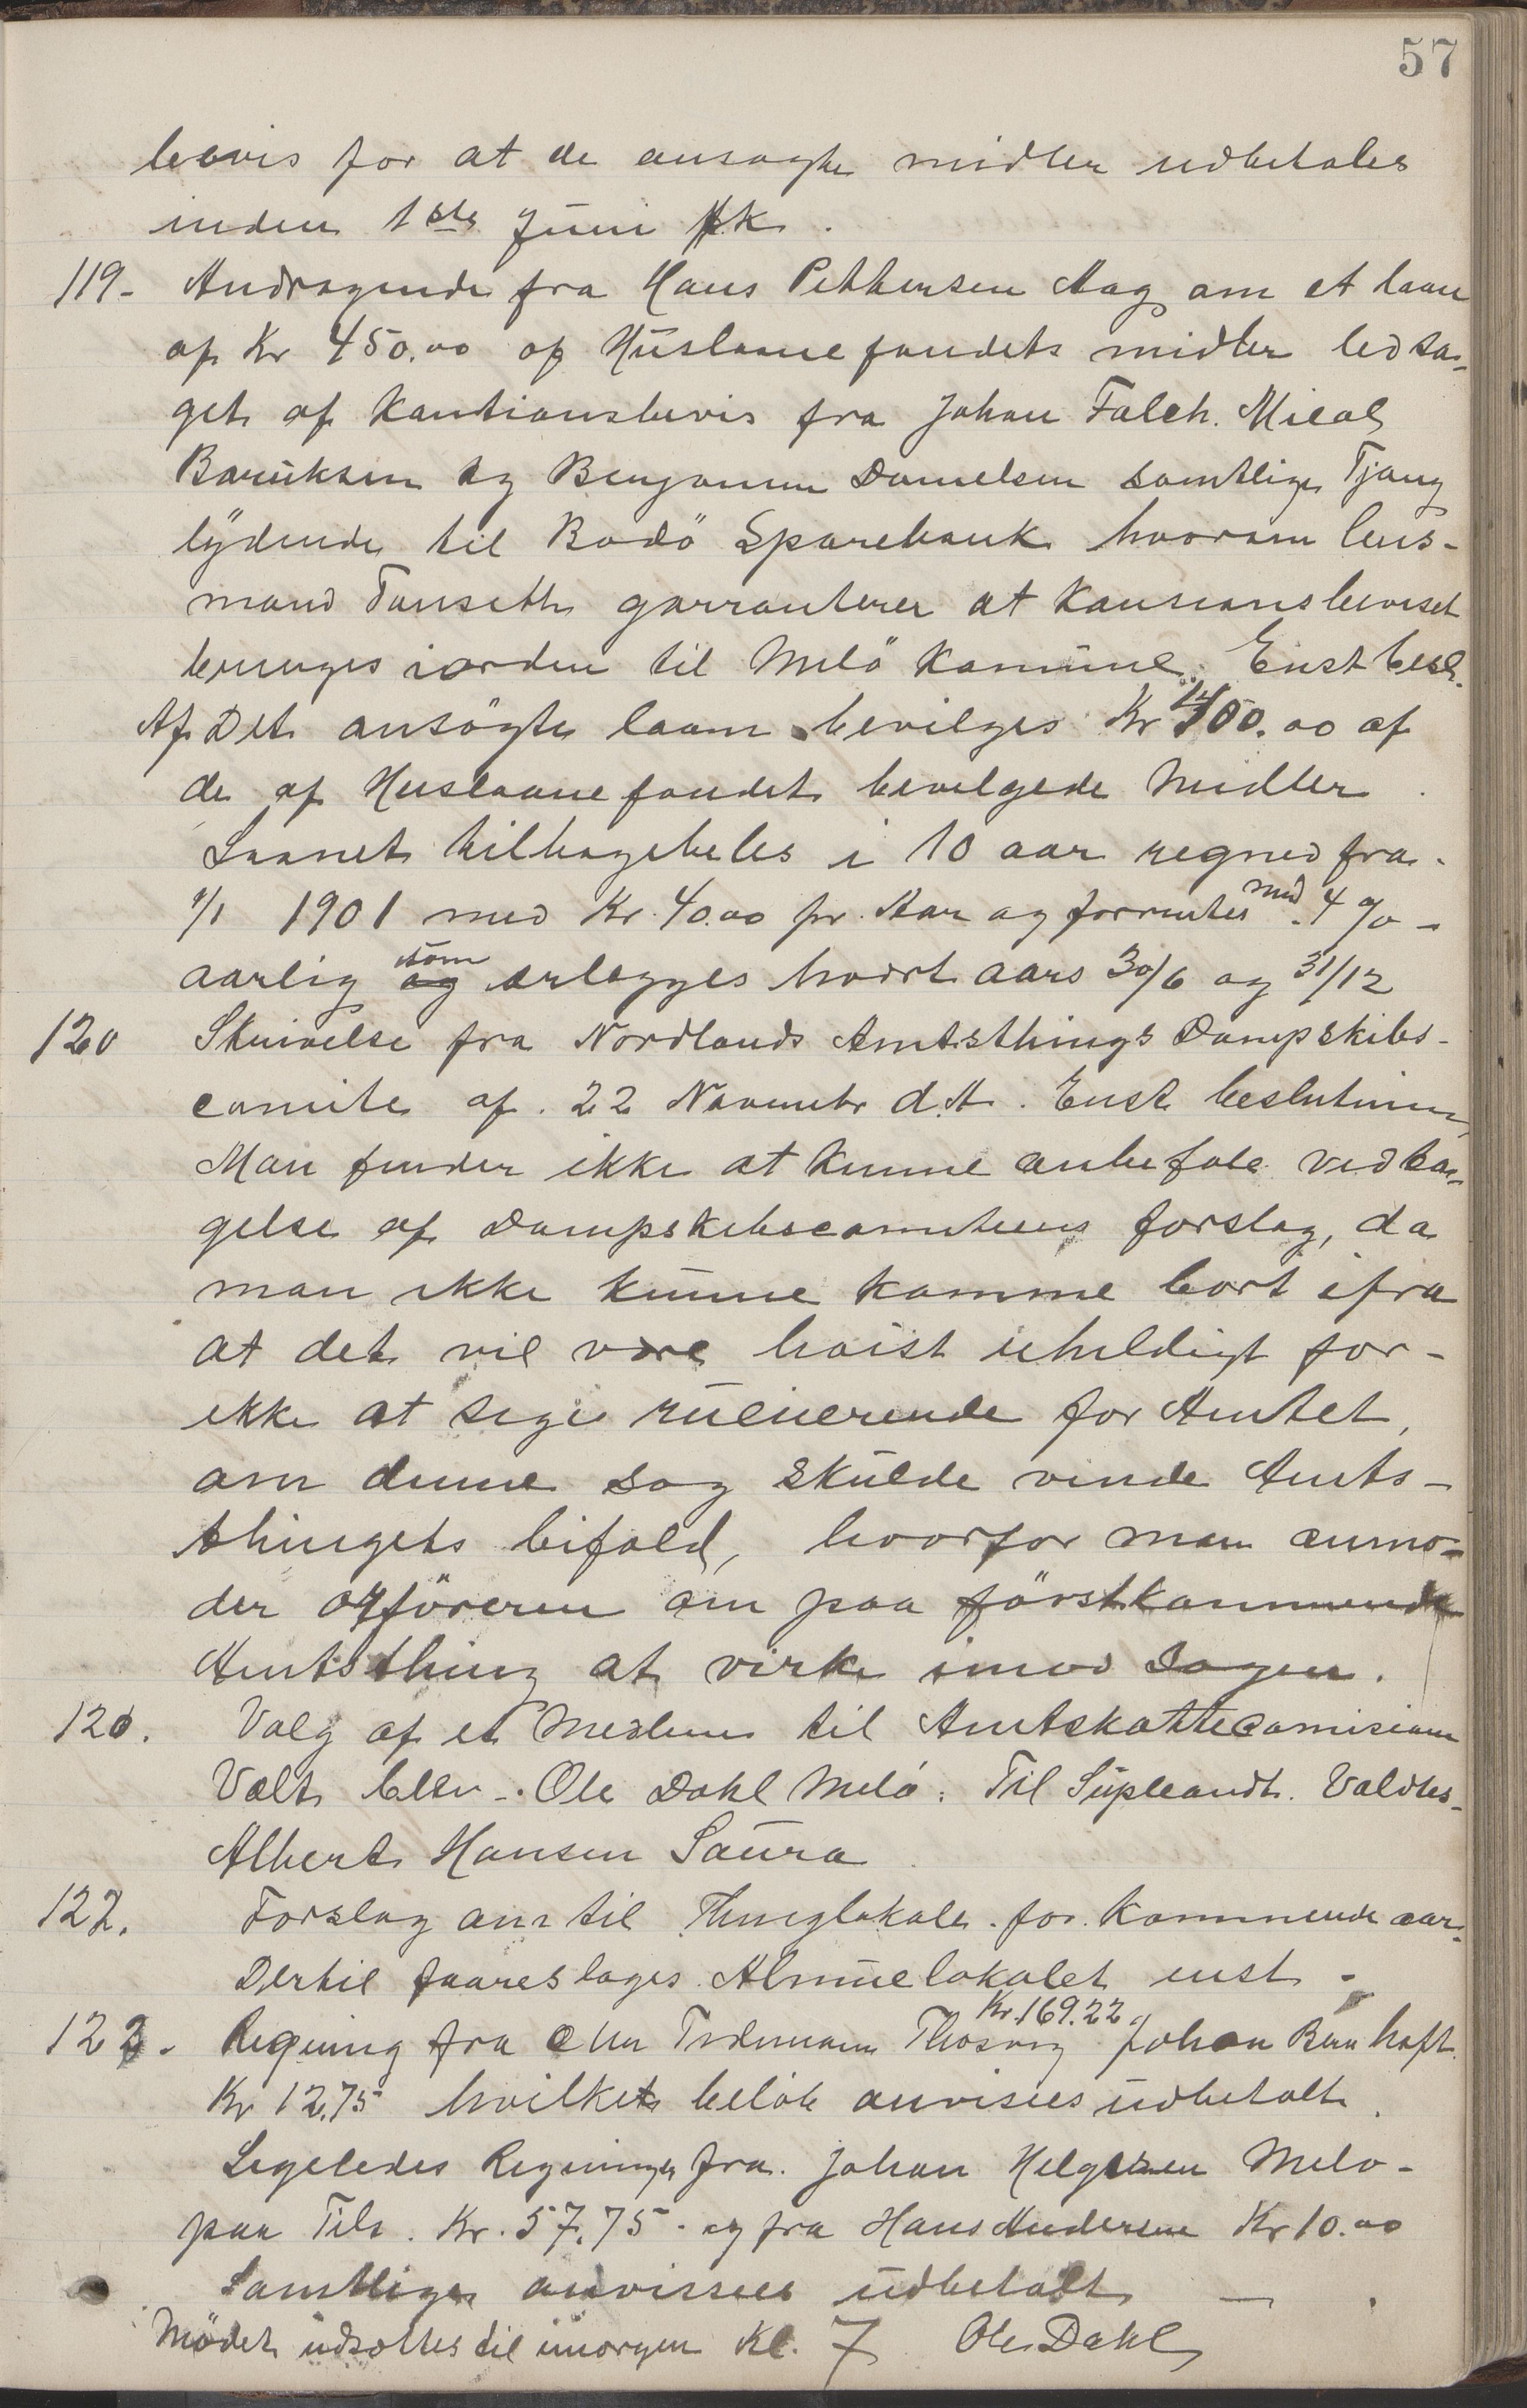 57
bevis for at de ansøgte midler udbetales
inden 1ste Juni f.k.
119. Andragende fra Hans Pettersen Aag om et laan
af Kr 450.00 af Huslaanefondets midler ledsa-
get af Kautionsbevis fra Johan Falch. Mical
Baruksen og Benjamin Danielsen samtlige Tjong
lydende til Bodö Sparebank hvorom lens-
mand Tanseth garranterer at Kausionsbeviset
bringes iorden til Melö Komune. Enst besl.
Af Det ansögte laan bevilges Kr 400.00 af
de af Huslaanefondet bevilgede Midler
Laanet tilbagebeles i 10 aar regned fra
1/1 1901 med Kr. 40.00 pr. Aar og forrentes med 4 % -
aarlig som erlegges hvert aars 30/6 og 31/12
120 Skrivelse fra Nordlands Amtsthings Dampskibs-
comite af. 22 November d.A. Enst beslutning
Man finder ikke at kunne anbefale vedta-
gelse af Dampskibscomiteens forslag, da
man ikke kunne komme bort ifra
at det vil være høist uheldigt for-
ikke at sige ruinerende for Amtet,
om denne sag skulde vinde Amts-
thingets bifald, hvorfor man anmo-
der ofböreren om paa förstkommende
Amtsthing at virke imod Sagen.
121. Valg af et Medlem til Amtskattecomision
Valt blev - Ole Dahl Melö. Til Supleandt. Valdtes
Albert Hansen Saura
122. Forslag om til Thinglokale for kommende aar.
Dertil foareslages Almuelokalet enst -
123. Regning fra Chr Tidemann Thosvig Kr. 169.22. Johan Bernhoft
Kr 12.75 hvilket belöb anvises udbetalt.
Legeledes Regninger fra. Johan Helgesen Melö -
paa Tils. Kr. 57.75. og fra Hans Andersen Kr 10.00
Samtlige anvisses udbetalt -
Mödet udsattes til imorgen Kl. 7 Ole Dahl